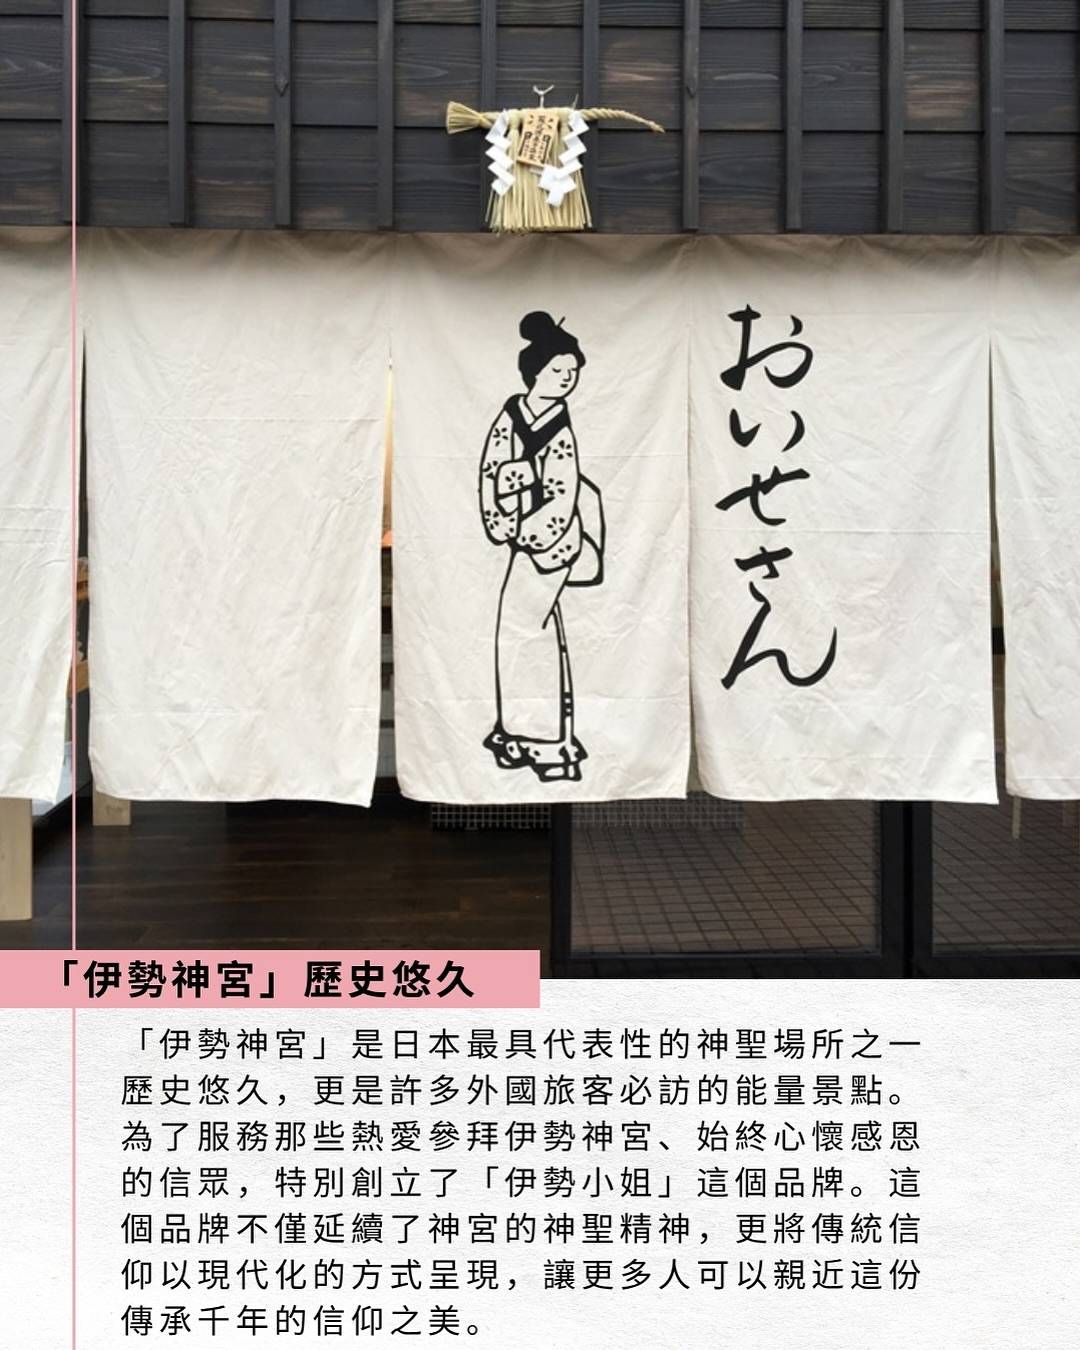 おいせさん
「伊勢神宮」歷史悠久
「伊勢神宮」是日本最具代表性的神聖場所之一
歷史悠久，更是許多外國旅客必訪的能量景點。
為了服務那些熱愛參拜伊勢神宮、始終心懷感恩
的信眾，特別創立了「伊勢小姐」這個品牌。這
個品牌不僅延續了神宮的神聖精神，更將傳統信
仰以現代化的方式呈現，讓更多人可以親近這份
傳承千年的信仰之美。